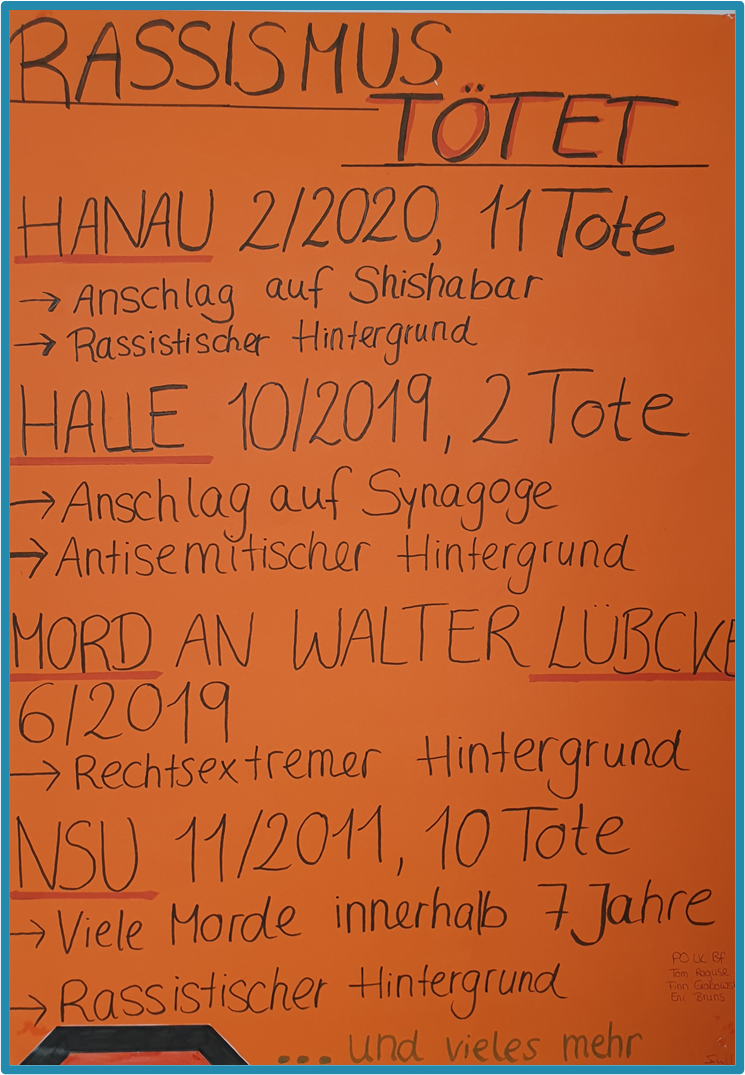 RASSISMUS
TÖTET
HANAU 2/2020, 11 Tote
→ Anschlag auf Shishabar
→ Rassistischer Hintergrund
HALLE 10/2019, 2 Tote
→ Anschlag auf Synagoge
→ Antisemitischer Hintergrund
MORD AN WALTER LÜBCKE
6/2019
→ Rechtsextremer Hintergrund
NSU 11/2011, 10 Tote
→ Viele Morde innerhalb 7 Jahre
→ Rassistischer Hintergrund
PO LK Bf
Tom
Finn
Eric Bruns
... und vieles mehr